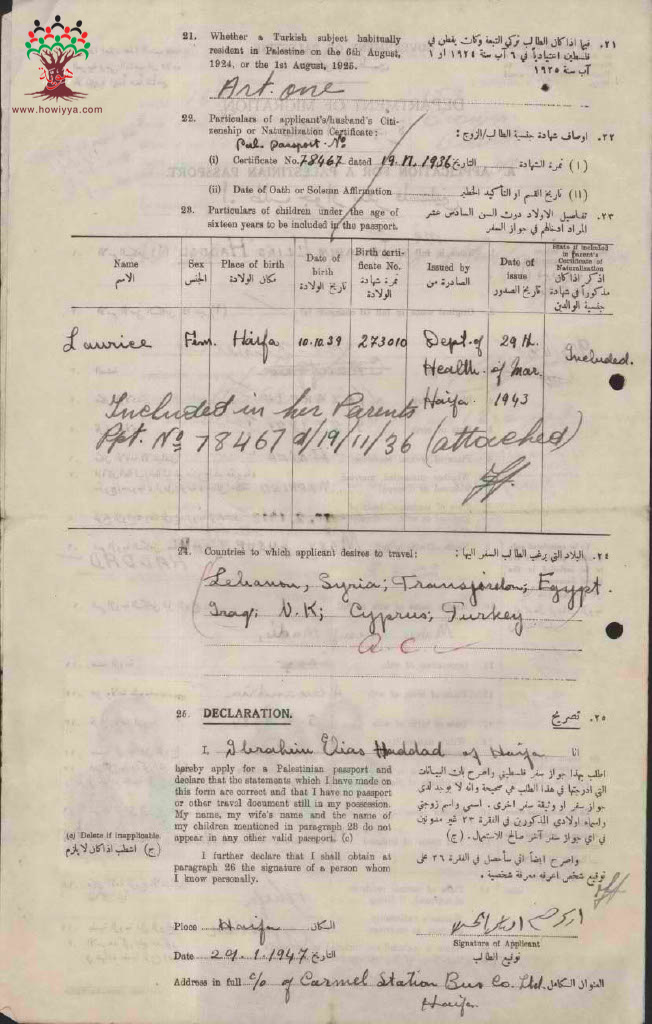 www.howiyya.com
21. Whether a Turkish subject habitually resident in Palestine on the 6th August, 1924, or the 1st August, 1925.
٢١. فيما اذا كان الطالب تركي التبعة وكان يقطن في فلسطين اعتيادياً في ٦ آب سنة ١٩٢٤ او ١ آب سنة ١٩٢٥
Art. one
22. Particulars of applicant's/husband's Citizenship or Naturalization Certificate:
٢٢. اوصاف شهادة جنسية الطالب/الزوج:
Pal. Passport. No
(i) Certificate No. 78467 dated 19.11.1936 التاريخ (١) نمرة الشهادة
(ii) Date of Oath or Solemn Affirmation (١١) تاريخ القسم او التأكيد الخطير
23. Particulars of children under the age of sixteen years to be included in the passport.
٢٣. تفاصيل الاولاد دون السن السادس عشر المراد ادخالهم في جواز السفر
Name الاسم
Sex الجنس
Place of birth مكان الولادة
Date of birth تاريخ الولادة
Birth certificate No. نمرة شهادة الولادة
Issued by الصادرة من
Date of issue تاريخ الصدور
State if included in Parent's Certificate of Naturalisation اذكر اذا كان مذكوراً في شهادة جنسية الوالدين
Laurice Fem. Haifa 10.10.39 273010 Dept. of Health. Haifa 29th. of Mar. 1943 Included.
Included in her Parents
Ppt. No 78467 d/19/11/36 (attached)
24. Countries to which applicant desires to travel: ٢٤. البلاد التي يرغب الطالب السفر اليها:
Lebanon, Syria; Transjordan; Egypt.
Iraq; U.K; Cyprus; Turkey
a.c
25. DECLARATION. ٢٥. تصريح
I, Ibrahim Elias Haddad of Haifa انا
hereby apply for a Palestinian passport and
declare that the statements which I have made on
this form are correct and that I have no passport
or other travel document still in my possession.
My name, my wife's name and the name of
my children mentioned in paragraph 23 do not
appear in any other valid passport. (c)
اطلب بهذا جواز سفر فلسطيني واصرح بان البيانات
التي ادرجتها في هذا الطلب هي صحيحة وانه لا يوجد لدي
جواز سفر او وثيقة سفر اخرى. اسمي واسم زوجتي
واسماء اولادي المذكورين في الفقرة ٢٣ غير مدونين
في اي جواز سفر آخر صالح للاستعمال. (ج)
(c) Delete if inapplicable
(ج) اشطب اذا كان لا يلزم
I further declare that I shall obtain at
paragraph 26 the signature of a person whom
I know personally.
واصرح ايضاً اني سأحصل في الفقرة ٢٦ على
توقيع شخص اعرفه معرفة شخصية.
Place Haifa المكان
Signature of Applicant
Date 29.1.1947 التاريخ توقيع الطالب
Address in full c/o of Carmel Station Bus Co. Ltd. العنوان الكامل
Haifa.